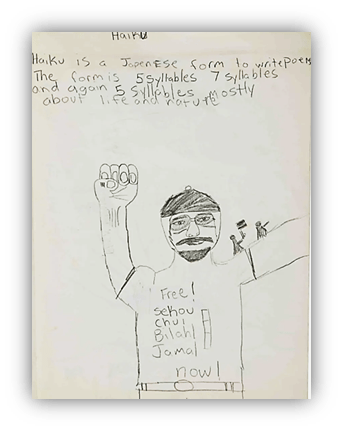 Haiku
Haiku is a Japenese form to write poems
The form is 5 syllables 7 syllables
and again 5 syllables mostly
about life and nature
Free!
sekou
chui
Bilal
Jamal
now!